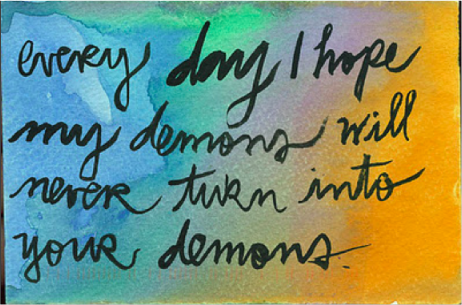 every day I hope
my demons will
never turn into
your demons.